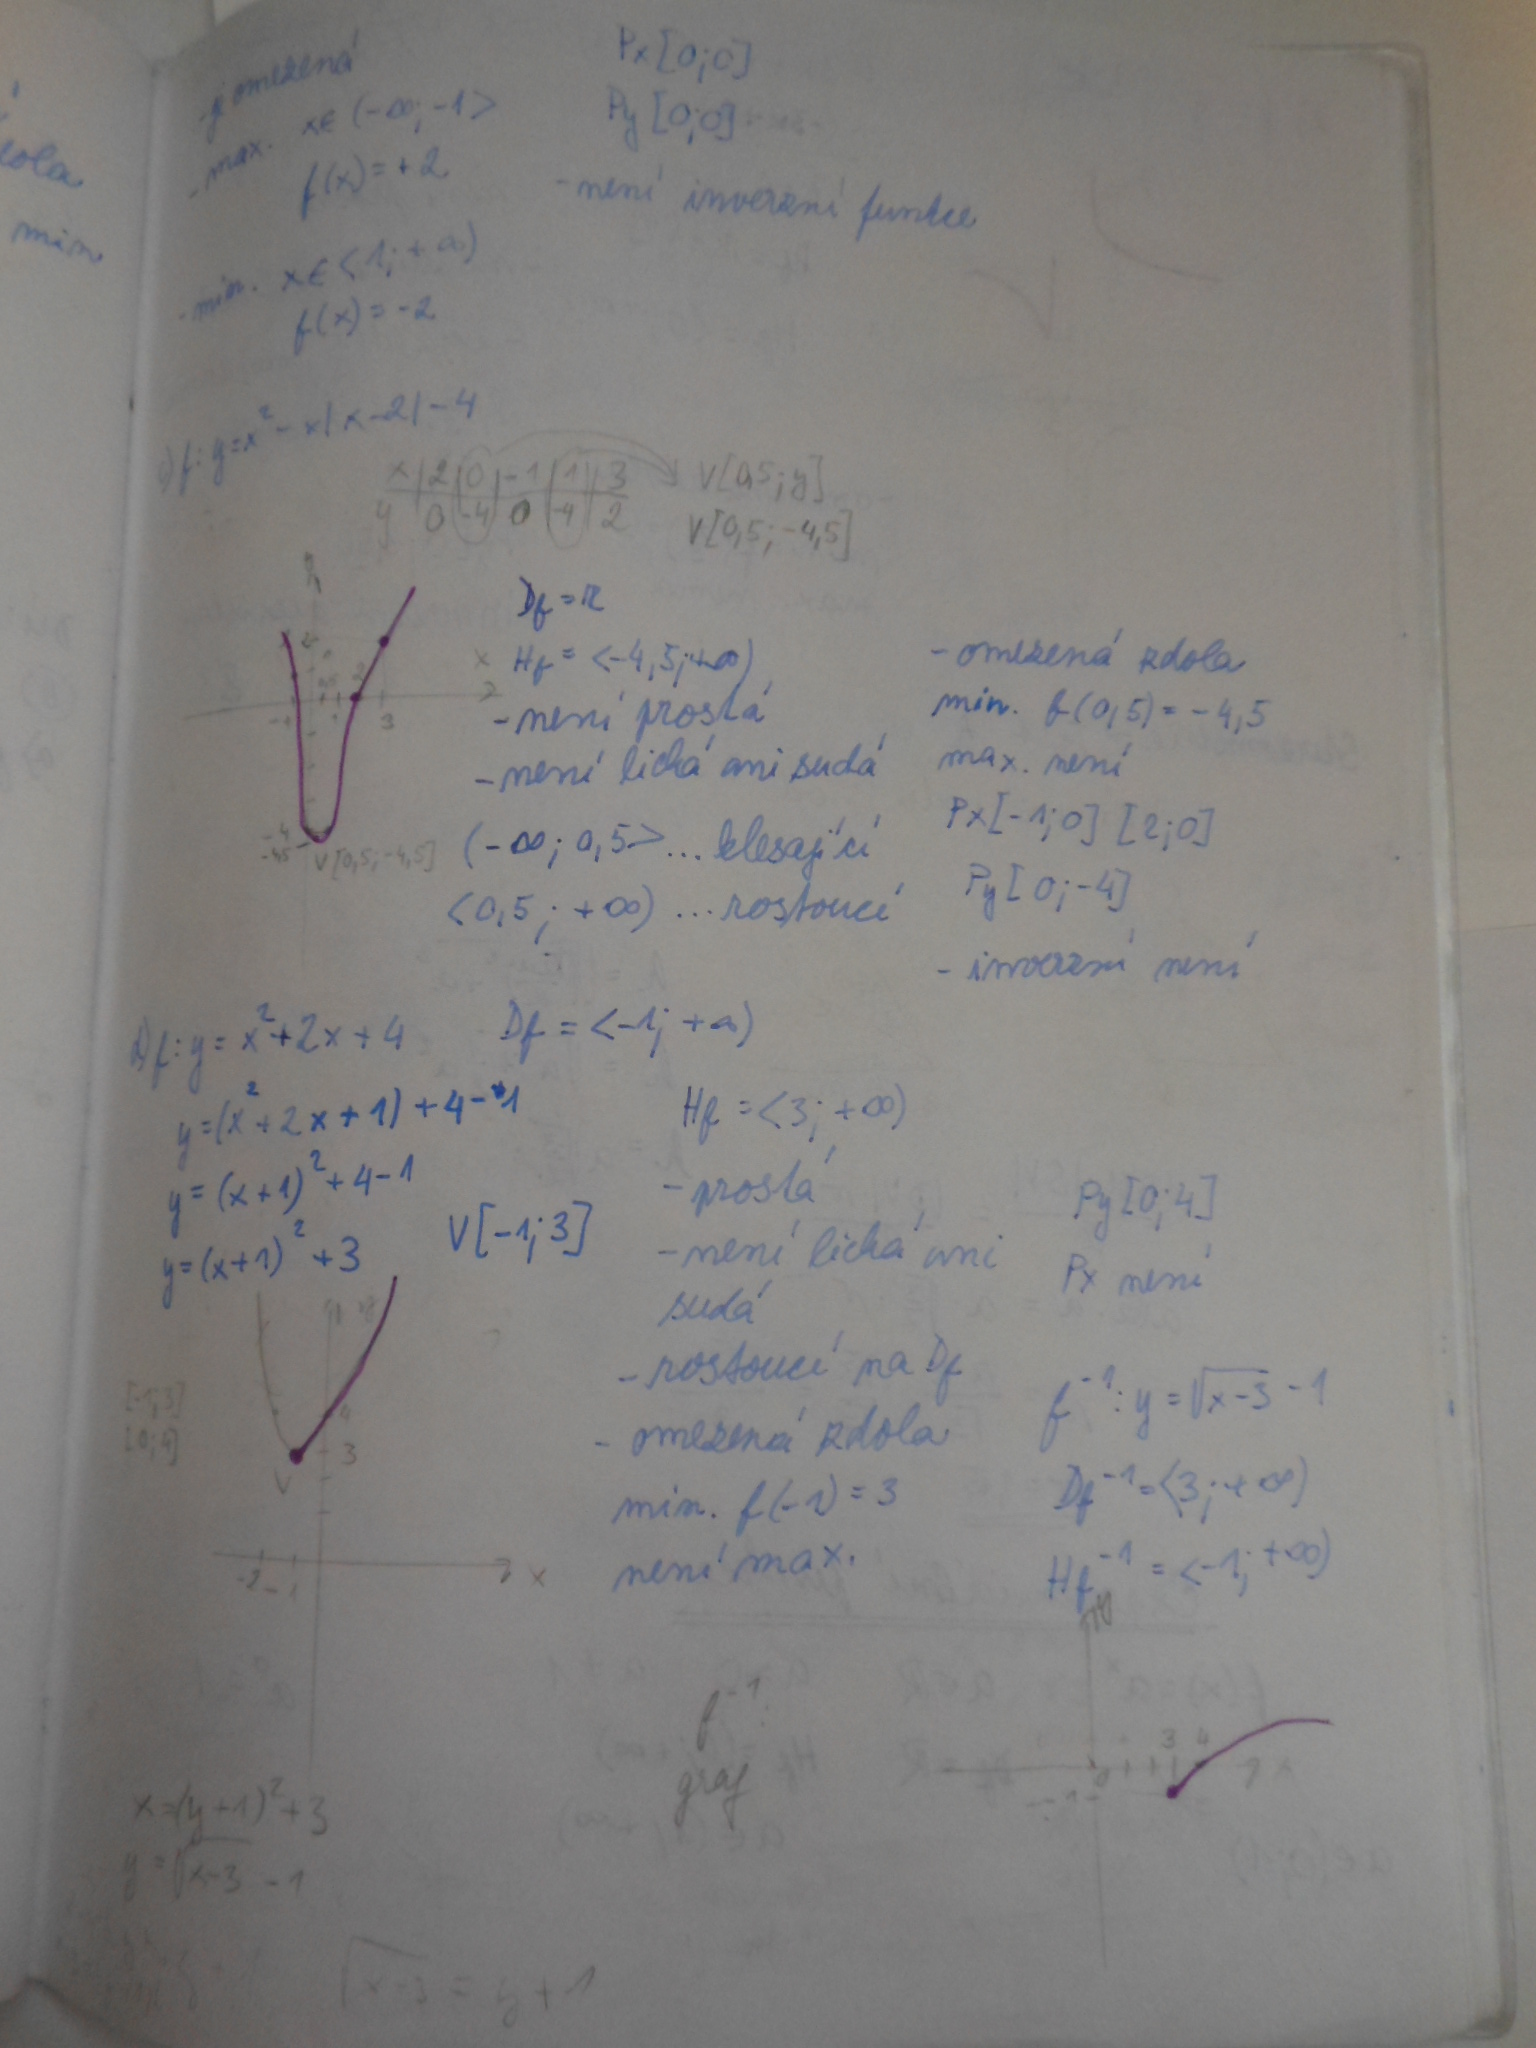 je omezená
- max. x∈(-∞; -1>
f(x) = +2
- min. x∈<1; +∞)
f(x) = -2
Px [0;0]
Py [0;0]
- není inverzní funkce
c) f: y = x² - x|x-2| - 4
x | 2 | 0 | -1 | 1 | 3
y | 0 | -4 | 0 | -4 | 2
V[0,5; y]
V[0,5; -4,5]
y
x
2
0,5
2
-1
1
3
-4
-4,5
V[0,5; -4,5]
Df = R
Hf = <-4,5; +∞)
- není prostá
- není lichá ani sudá
(-∞; 0,5> ... klesající
<0,5; +∞) ... rostoucí
- omezená zdola
min. f(0,5) = -4,5
max. není
Px[-1;0] [2;0]
Py[0;-4]
- inverzní není
d) f: y = x² + 2x + 4
y = (x² + 2x + 1) + 4 - 1
y = (x+1)² + 4 - 1
y = (x+1)² + 3
V[-1;3]
Df = <-1; +∞)
Hf = <3; +∞)
- prostá
- není lichá ani
sudá
- rostoucí na Df
- omezená zdola
min. f(-1) = 3
není max.
Py[0;4]
Px není
f⁻¹: y = √x-3 - 1
Df⁻¹ = <3; +∞)
Hf⁻¹ = <-1; +∞)
[-1;3]
[0;4]
y
4
3
V
-2
-1
x
f⁻¹:
graf
y
3
4
0
x
-1
x = (y+1)² + 3
y = √x-3 - 1
√x-3 = y + 1
kola
min